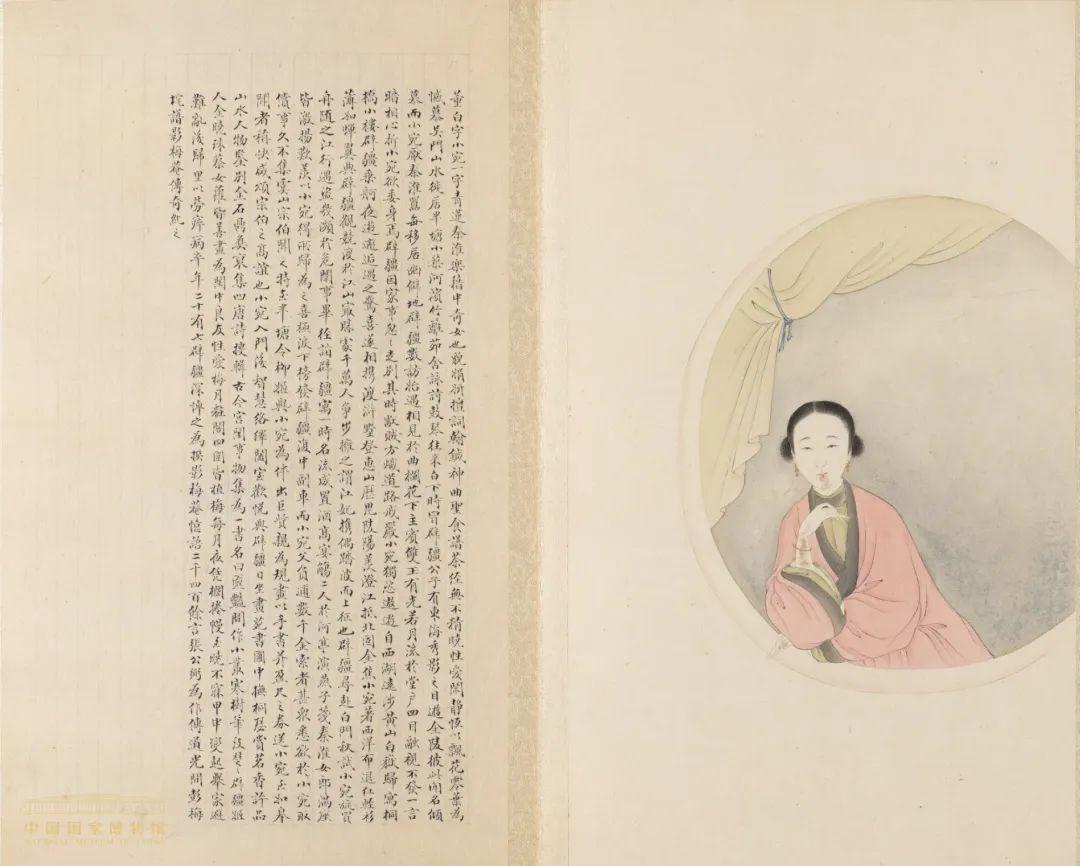 董白字小宛一字青蓮秦淮樂籍中奇女也貌娟妍擅詞翰鍼神曲聖食譜茶經無不精曉性愛閑静恆以飄花零葉為
憾慕吳門山水徙居半塘小築河濱竹離茆舍詠詩鼓琴往来白下時冒辟疆公子有東海秀影之目遊金陵彼此聞名傾
慕而小宛厭秦淮囂每移居幽僻地辟疆數訪始遇相見於曲欄花下主賓雙玉有光若月流於堂户四目融視不發一言
暗相心折小宛欲委身焉辟疆因家事怱々走别其時獻賊方熾道路戒嚴小宛獨恣遨遊自西湖遠涉黄山白嶽歸寓桐
橋小樓辟疆乘舸夜遊邂逅遇之驚喜遂相携渡滸墅登惠山歷毘陵陽羨澄江抵北固金焦小宛著西洋布退红輕衫
薄如蟬翼與辟疆觀競渡於江山最勝處千萬人爭步擁之謂江妃携偶踏波而上征也辟疆尋赴白門秋試小宛旋買
舟随之江行遇盜幾瀕於危闈事畢径詣辟疆寓一時名流咸置酒高宴觴二人於河亭演燕子箋秦淮女郎满座
皆激揚歎羨以小宛得所歸為之喜極淚下榜發辟疆復中副車而小宛父負逋數千金索者甚衆悉欲於小宛取
償事久不集虞山宗伯聞之特至半塘令柳姬與小宛為伴出巨資親為規畫以手書并盈尺之券送小宛至如皋
聞者稱快咸頌宗伯之高誼也小宛入門後智慧络繹闔室歡悦與辟疆日坐畫苑書圃中撫桐瑟賞茗香評品
山水人物鑒别金石鼎彝裒集四唐詩搜輯古今宮閨事物集為一書名曰奩艷閒作小叢寒樹筆致楚々辟疆姬
人金曉珠蔡女蘿皆善畫為閨中良友性愛梅月粧閣四圍皆植梅每月夜凭欄捲幔至曉不寐甲申變起舉家避
難亂後歸里以勞瘁病卒年二十有七辟疆深悼之為撰影梅菴憶語二千四百餘言張公弼為作傳道光間彭梅
垞譜影梅菴傳奇紀之
中国国家博物館
NATIONAL MUSEUM OF CHINA